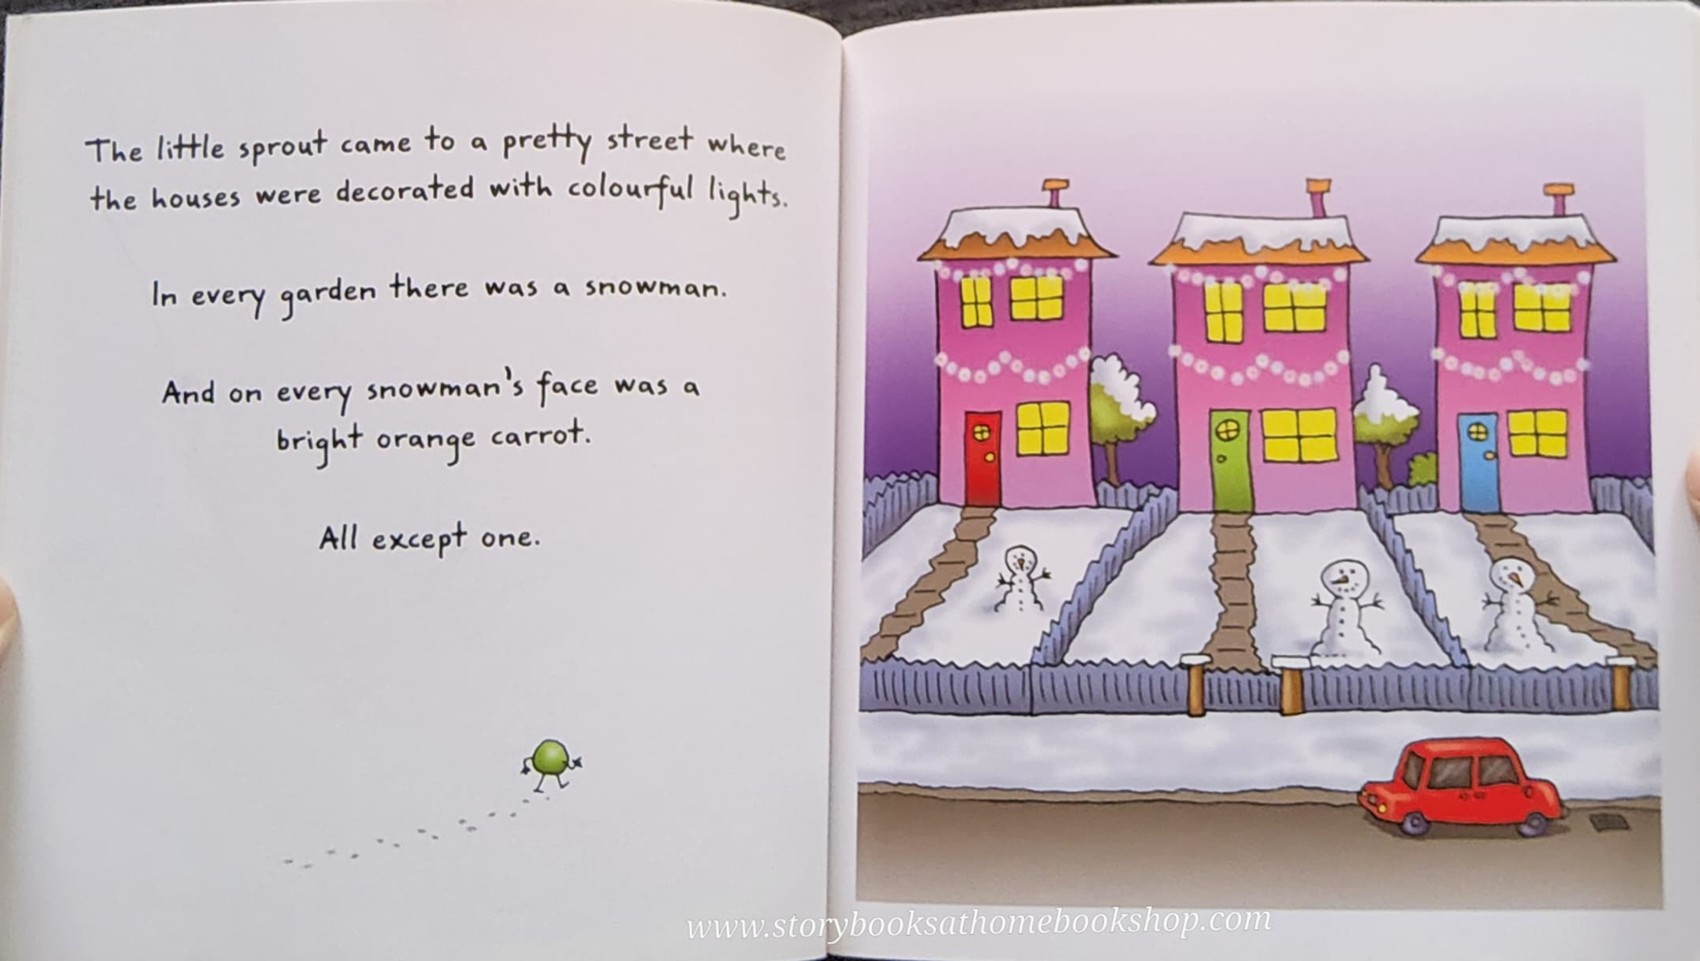 The little sprout came to a pretty street where
the houses were decorated with colourful lights.
In every garden there was a snowman.
And on every snowman's face was a
bright orange carrot.
All except one.
www.storybooksathomebookshop.com